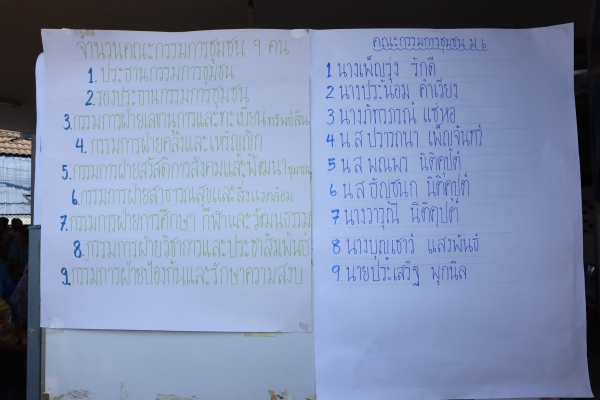 จำนวนคณะกรรมการชุมชน 9 คน
1. ประธานกรรมการชุมชน
2. รองประธานกรรมการชุมชน
3. กรรมการฝ่ายเลขานุการและทะเบียนทรัพย์สิน
4. กรรมการฝ่ายคลังและเหรัญญิก
5. กรรมการฝ่ายสวัสดิการสังคมและพัฒนาชุมชน
6. กรรมการฝ่ายสาธารณสุขและสิ่งแวดล้อม
7. กรรมการฝ่ายการศึกษา กีฬาและวัฒนธรรม
8. กรรมการฝ่ายวิชาการและประชาสัมพันธ์
9. กรรมการฝ่ายป้องกันและรักษาความสงบ
คณะกรรมการชุมชน ม.6
1 นางเพ็ญรุ่ง รักดี
2 นางประนอม คำเวียง
3 นางภัทราภรณ์
4 น.ส ปรารถนา เพ็ญจันทร์
5 น.ส พณพร นิติคุปต์
6 น.ส ธัญชนก นิติคุปต์
7 นางวารุณี นิติคุปต์
8 นางบุญเชาว์ แสงพันธ์
9. นายประเสริฐ พุกนิล